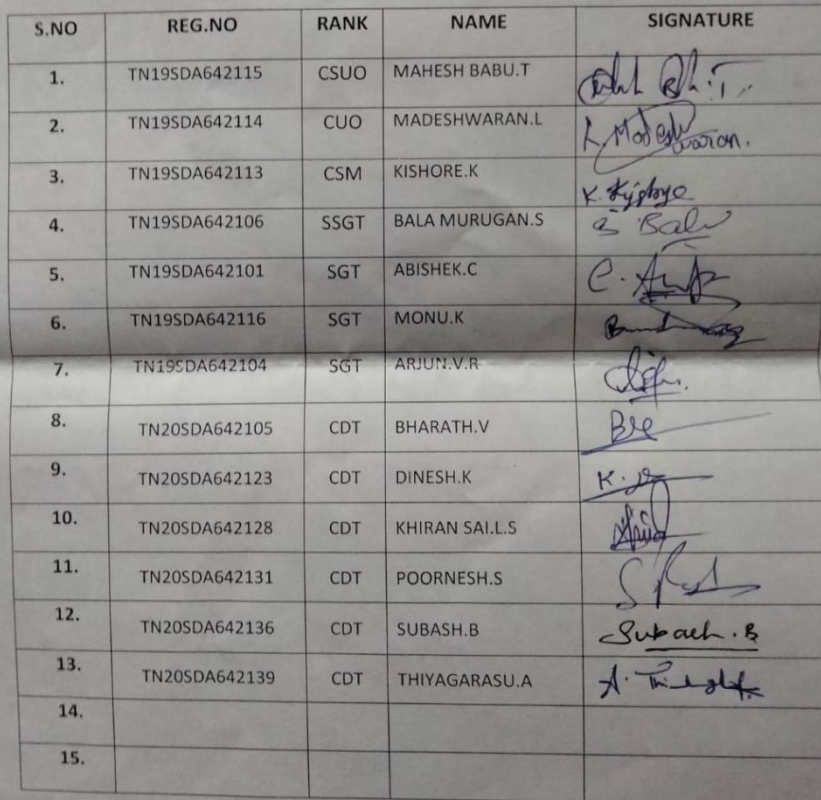 S.NO REG.NO RANK NAME SIGNATURE
1. TN19SDA642115 CSUO MAHESH BABU.T
2. TN19SDA642114 CUO MADESHWARAN.L L. Madesh waran.
3. TN19SDA642113 CSM KISHORE.K
4. TN19SDA642106 SSGT BALA MURUGAN.S S Balu
5. TN19SDA642101 SGT ABISHEK.C
6. TN19SDA642116 SGT MONU.K
7. TN19SDA642104 SGT ARJUN.V.R
8. TN20SDA642105 CDT BHARATH.V
9. TN20SDA642123 CDT DINESH.K
10. TN20SDA642128 CDT KHIRAN SAI.L.S
11. TN20SDA642131 CDT POORNESH.S
12. TN20SDA642136 CDT SUBASH.B Subash.B
13. TN20SDA642139 CDT THIYAGARASU.A
14.
15.